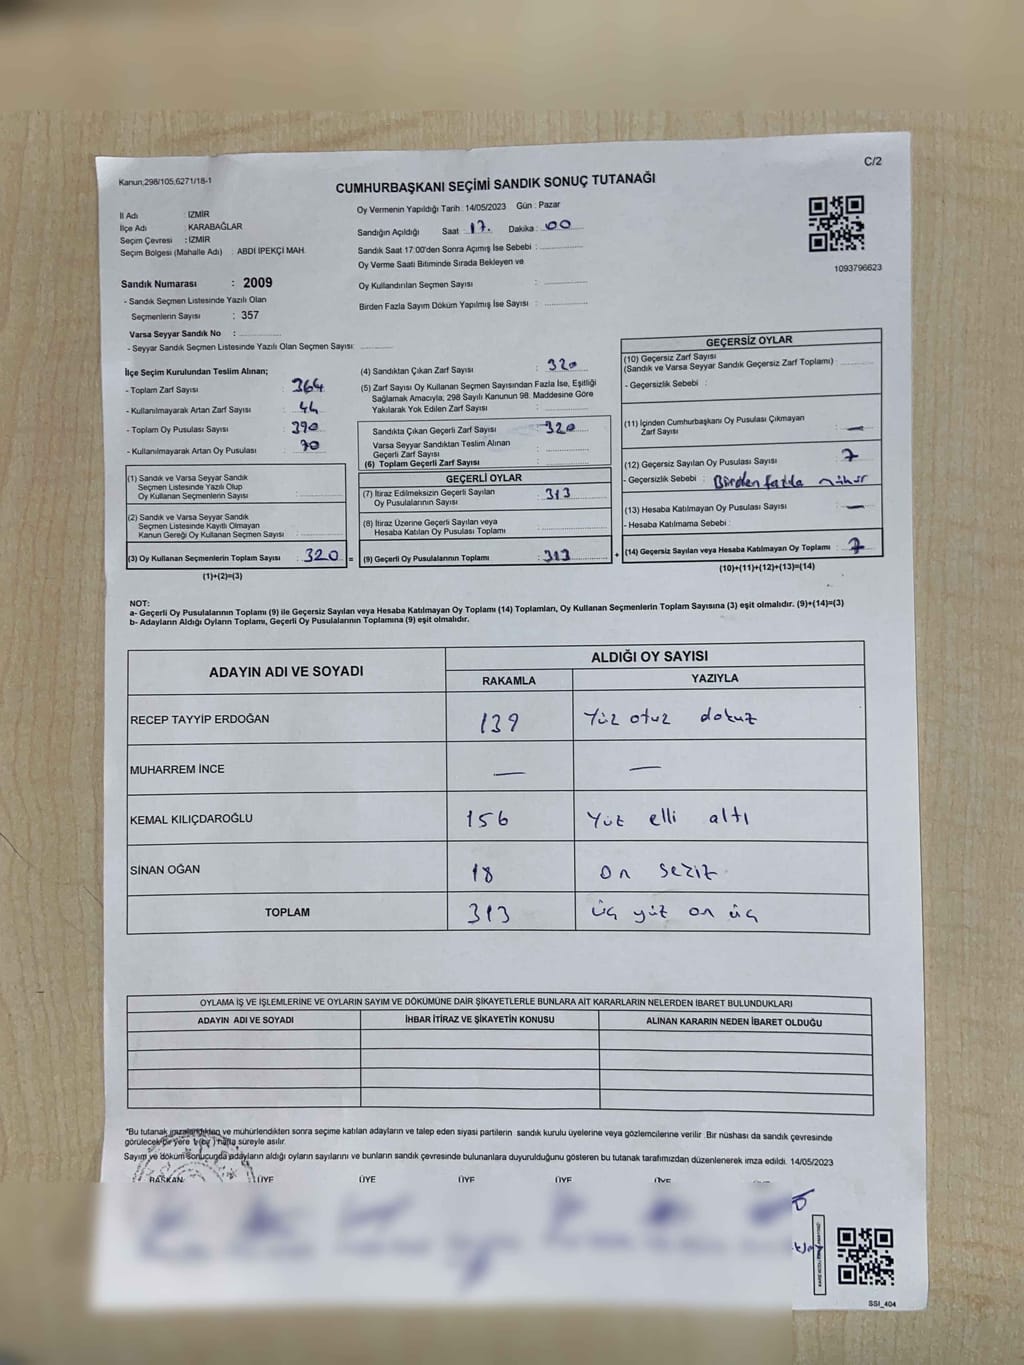 C/2
Kanun;298/105,6271/18-1
CUMHURBAŞKANI SEÇİMİ SANDIK SONUÇ TUTANAĞI
İl Adı : İZMİR
İlçe Adı : KARABAĞLAR
Seçim Çevresi : İZMİR
Seçim Bölgesi (Mahalle Adı) : ABDİ İPEKÇİ MAH.
Oy Vermenin Yapıldığı Tarih : 14/05/2023 Gün : Pazar
Sandığın Açıldığı Saat : 17. Dakika : 00
Sandık Saat 17:00'den Sonra Açımış İse Sebebi :
Oy Verme Saati Bitiminde Sırada Bekleyen ve
Oy Kullandırılan Seçmen Sayısı :
Birden Fazla Sayım Döküm Yapılmış İse Sayısı :
1093796623
Sandık Numarası : 2009
- Sandık Seçmen Listesinde Yazılı Olan
Seçmenlerin Sayısı : 357
Varsa Seyyar Sandık No :
- Seyyar Sandık Seçmen Listesinde Yazılı Olan Seçmen Sayısı:
İlçe Seçim Kurulundan Teslim Alınan;
- Toplam Zarf Sayısı : 364
- Kullanılmayarak Artan Zarf Sayısı : 44
- Toplam Oy Pusulası Sayısı : 390
- Kullanılmayarak Artan Oy Pusulası : 70
(1) Sandık ve Varsa Seyyar Sandık
Seçmen Listesinde Yazılı Olup
Oy Kullanan Seçmenlerin Sayısı :
(2) Sandık ve Varsa Seyyar Sandık
Seçmen Listesinde Kayıtlı Olmayan
Kanun Gereği Oy Kullanan Seçmen Sayısı :
(3) Oy Kullanan Seçmenlerin Toplam Sayısı : 320 =
(1)+(2)=(3)
(4) Sandıktan Çıkan Zarf Sayısı : 320
(5) Zarf Sayısı Oy Kullanan Seçmen Sayısından Fazla İse, Eşitliği
Sağlamak Amacıyla; 298 Sayılı Kanunun 98. Maddesine Göre
Yakılarak Yok Edilen Zarf Sayısı :
Sandıkta Çıkan Geçerli Zarf Sayısı : 320
Varsa Seyyar Sandıktan Teslim Alınan
Geçerli Zarf Sayısı :
(6) Toplam Geçerli Zarf Sayısı :
GEÇERLİ OYLAR
(7) İtiraz Edilmeksizin Geçerli Sayılan
Oy Pusulalarının Sayısı : 313
(8) İtiraz Üzerine Geçerli Sayılan veya
Hesaba Katılan Oy Pusulası Toplamı :
(9) Geçerli Oy Pusulalarının Toplamı : 313 +
GEÇERSİZ OYLAR
(10) Geçersiz Zarf Sayısı
(Sandık ve Varsa Seyyar Sandık Geçersiz Zarf Toplamı) :
- Geçersizlik Sebebi :
(11) İçinden Cumhurbaşkanı Oy Pusulası Çıkmayan
Zarf Sayısı : —
(12) Geçersiz Sayılan Oy Pusulası Sayısı : 7
- Geçersizlik Sebebi : Birden fazla mühür
(13) Hesaba Katılmayan Oy Pusulası Sayısı : —
- Hesaba Katılmama Sebebi :
(14) Geçersiz Sayılan veya Hesaba Katılmayan Oy Toplamı : 7
(10)+(11)+(12)+(13)=(14)
NOT:
a- Geçerli Oy Pusulalarının Toplamı (9) ile Geçersiz Sayılan veya Hesaba Katılmayan Oy Toplamı (14) Toplamları, Oy Kullanan Seçmenlerin Toplam Sayısına (3) eşit olmalıdır. (9)+(14)=(3)
b- Adayların Aldığı Oyların Toplamı, Geçerli Oy Pusulalarının Toplamına (9) eşit olmalıdır.
ADAYIN ADI VE SOYADI ALDIĞI OY SAYISI
RAKAMLA YAZIYLA
RECEP TAYYİP ERDOĞAN 139 Yüz otuz dokuz
MUHARREM İNCE — —
KEMAL KILIÇDAROĞLU 156 Yüz elli altı
SİNAN OĞAN 18 on sekiz
TOPLAM 313 üç yüz on üç
OYLAMA İŞ VE İŞLEMLERİNE VE OYLARIN SAYIM VE DÖKÜMÜNE DAİR ŞİKAYETLERLE BUNLARA AİT KARARLARIN NELERDEN İBARET BULUNDUKLARI
ADAYIN ADI VE SOYADI İHBAR İTİRAZ VE ŞİKAYETİN KONUSU ALINAN KARARIN NEDEN İBARET OLDUĞU
*Bu tutanak imzalandıktan ve mühürlendikten sonra seçime katılan adayların ve talep eden siyasi partilerin sandık kurulu üyelerine veya gözlemcilerine verilir. Bir nüshası da sandık çevresinde
görülecek bir yere 1(bir) hafta süreyle asılır.
Sayım ve döküm sonucunda adayların aldığı oyların sayılarını ve bunların sandık çevresinde bulunanlara duyurulduğunu gösteren bu tutanak tarafımızdan düzenlenerek imza edildi. 14/05/2023
BAŞKAN ÜYE ÜYE ÜYE ÜYE ÜYE
SSI_404